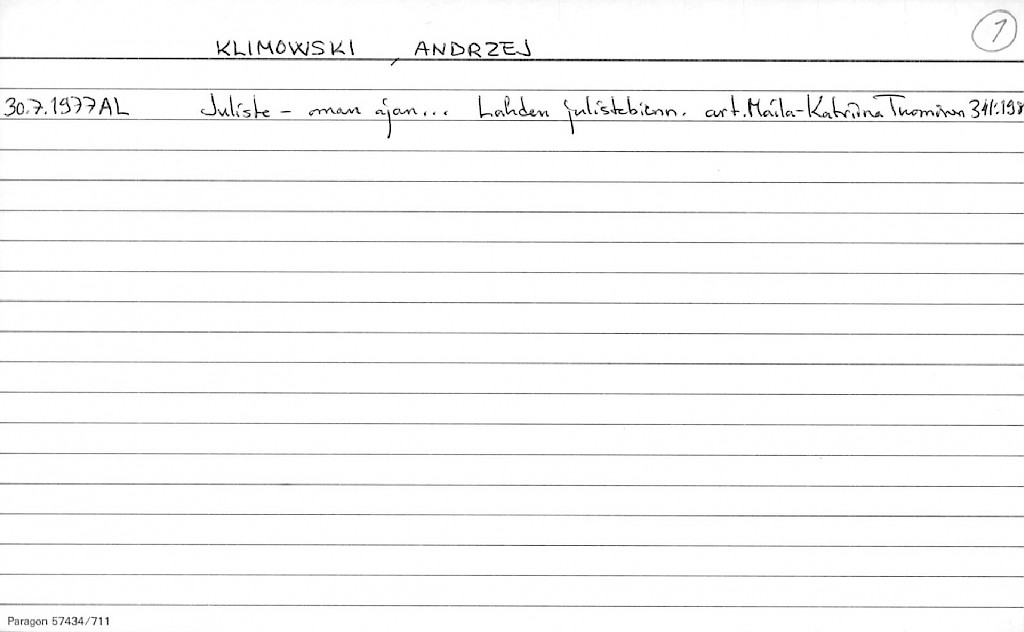 1
KLIMOWSKI, ANDRZEJ
30.7.1977 AL Juliste - oman ajan... Lahden julistebienn. art. Maila-Katriina Tuominen
Paragon 57434/711